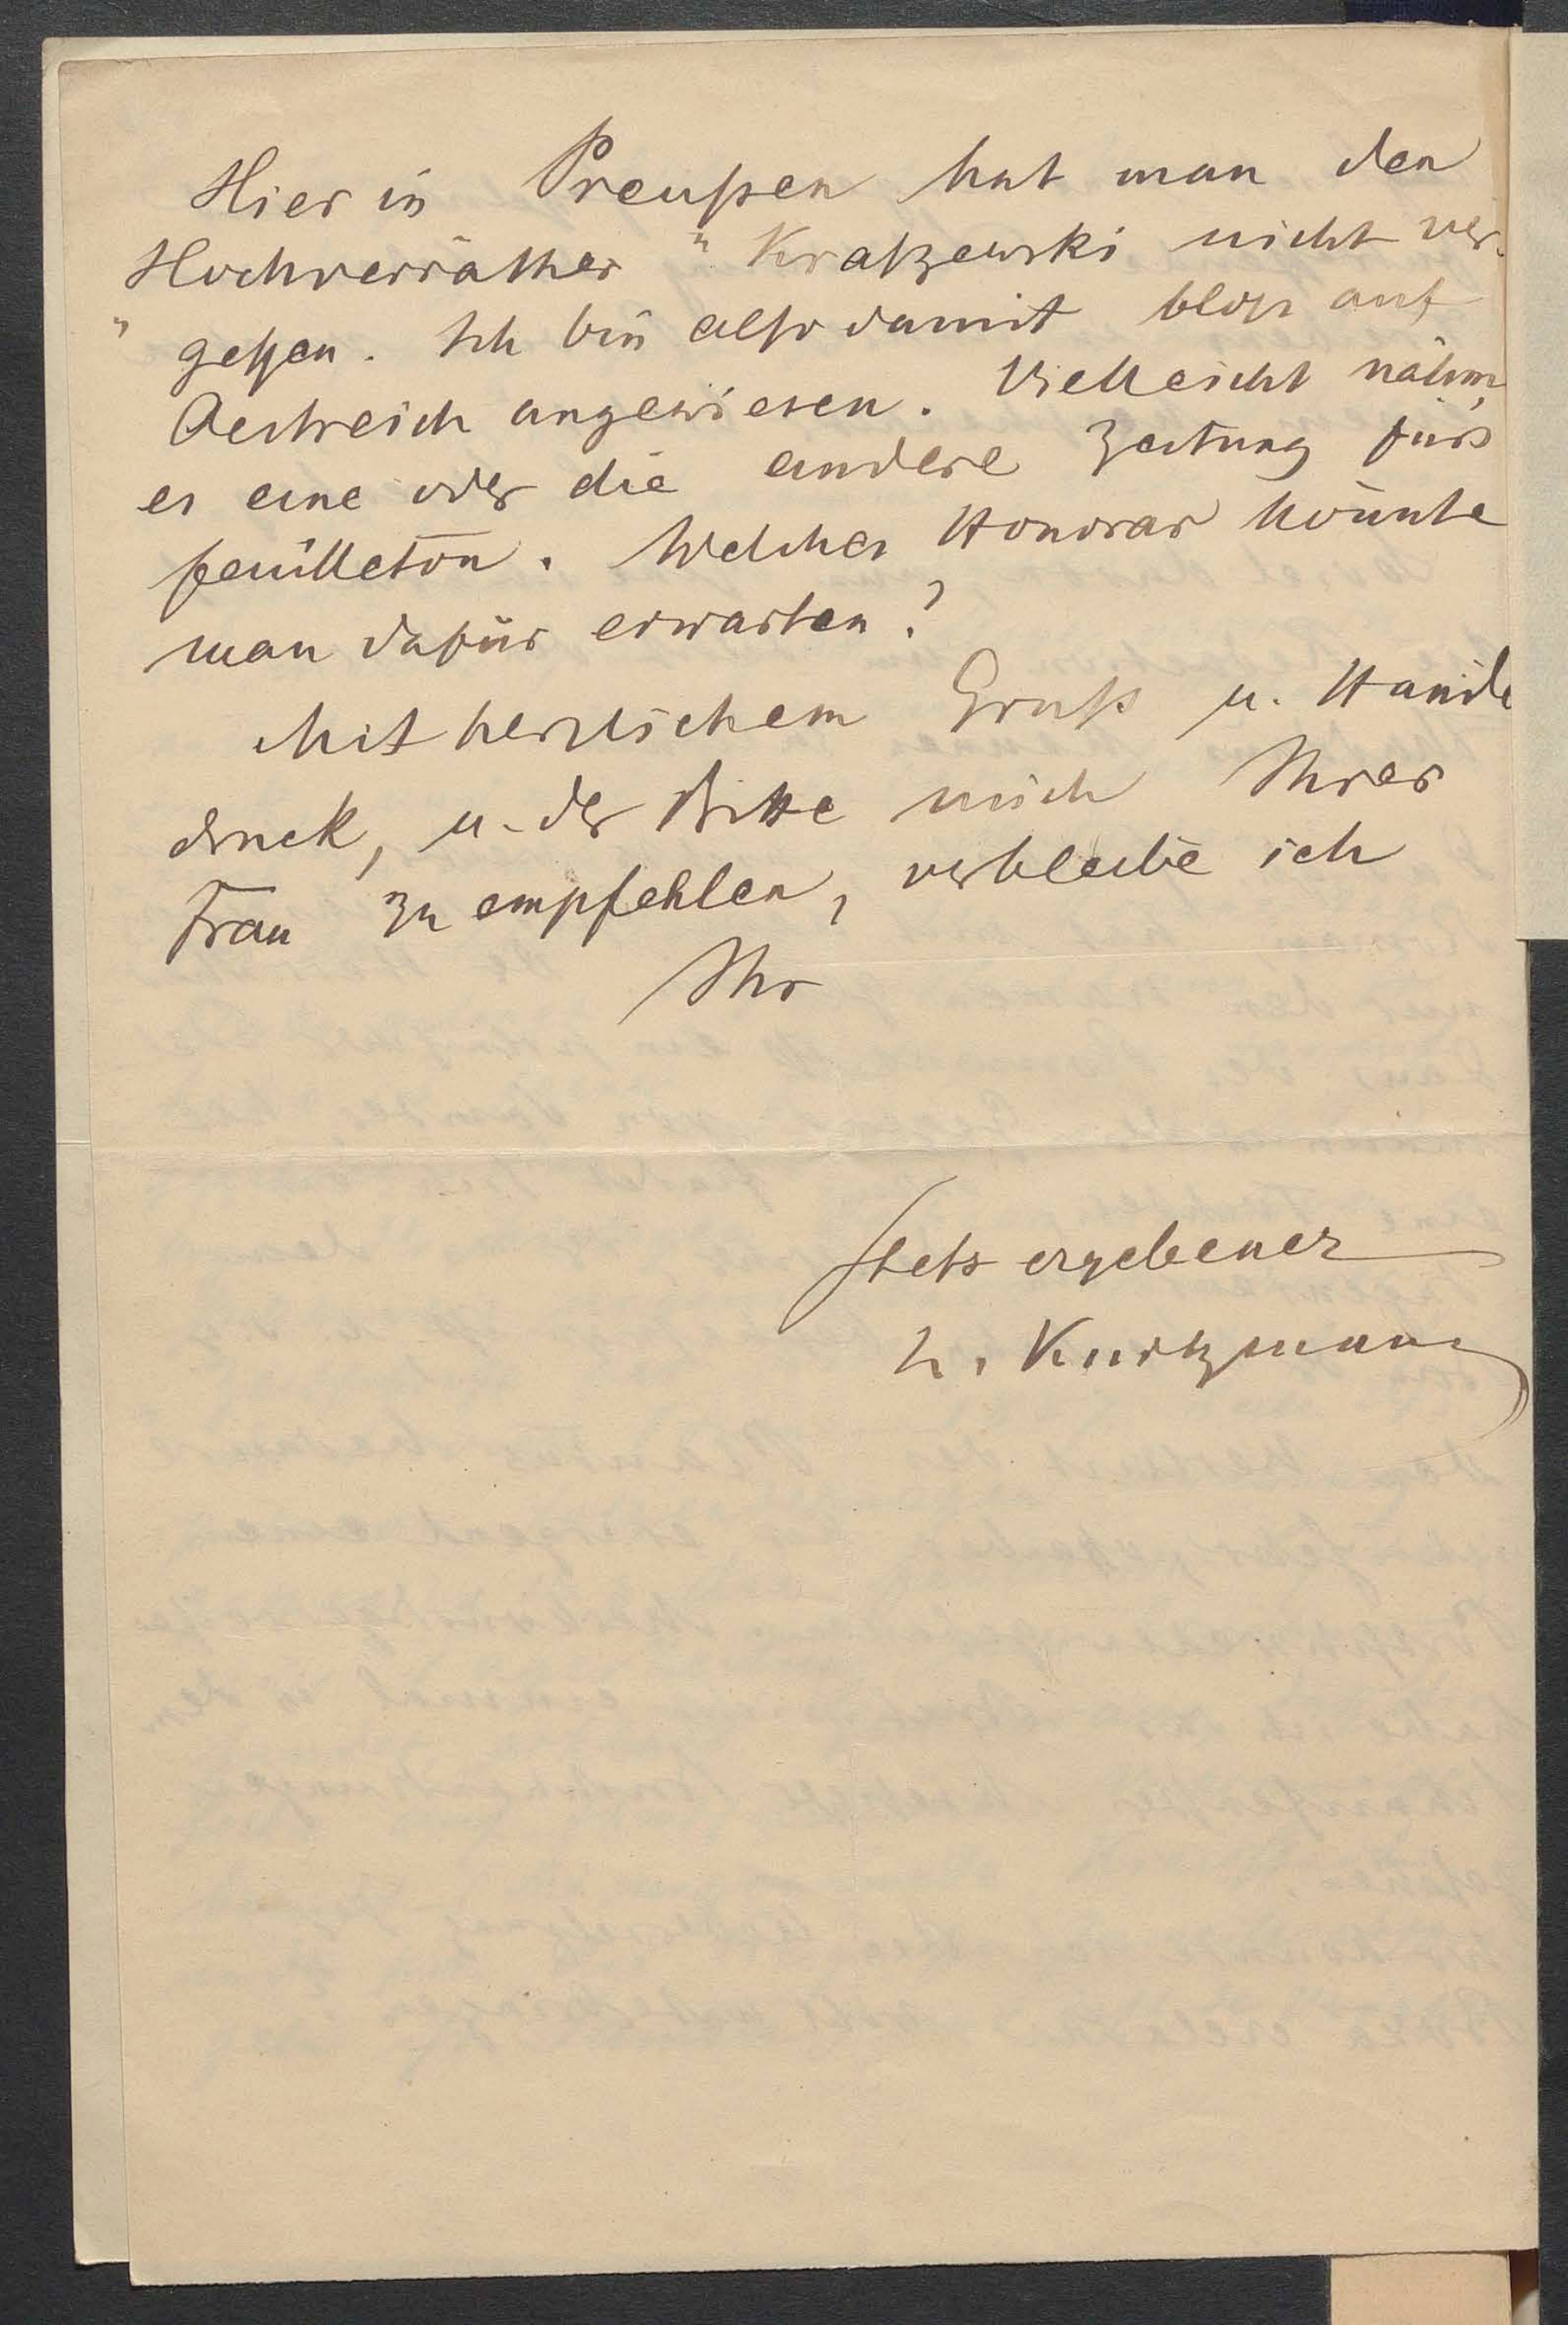 Hier in Preußen hat man den
„Hochverräther“ Kraßzewski nicht ver-
gessen. Ich bin also damit bloß auf
Oestreich angewiesen. Vielleicht nähm
es eine oder die andere Zeitung fürs
feuilleton. Welches Honorar könnte
man dafür erwarten?
Mit herzlichem Gruß u. Hände
druck, u. der Bitte mich Ihrer
Frau zu empfehlen, verbleibe ich
Ihr
stets ergebener
L. Kurtzmann